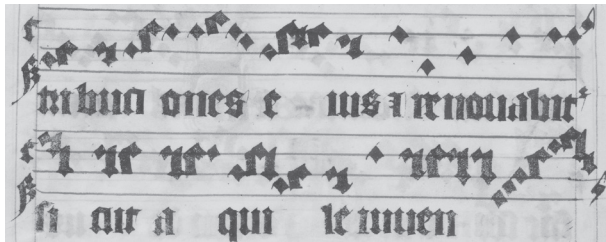 tribuci ones e - ius ⁊ renouabit᷑
si cut a qui le iuuen